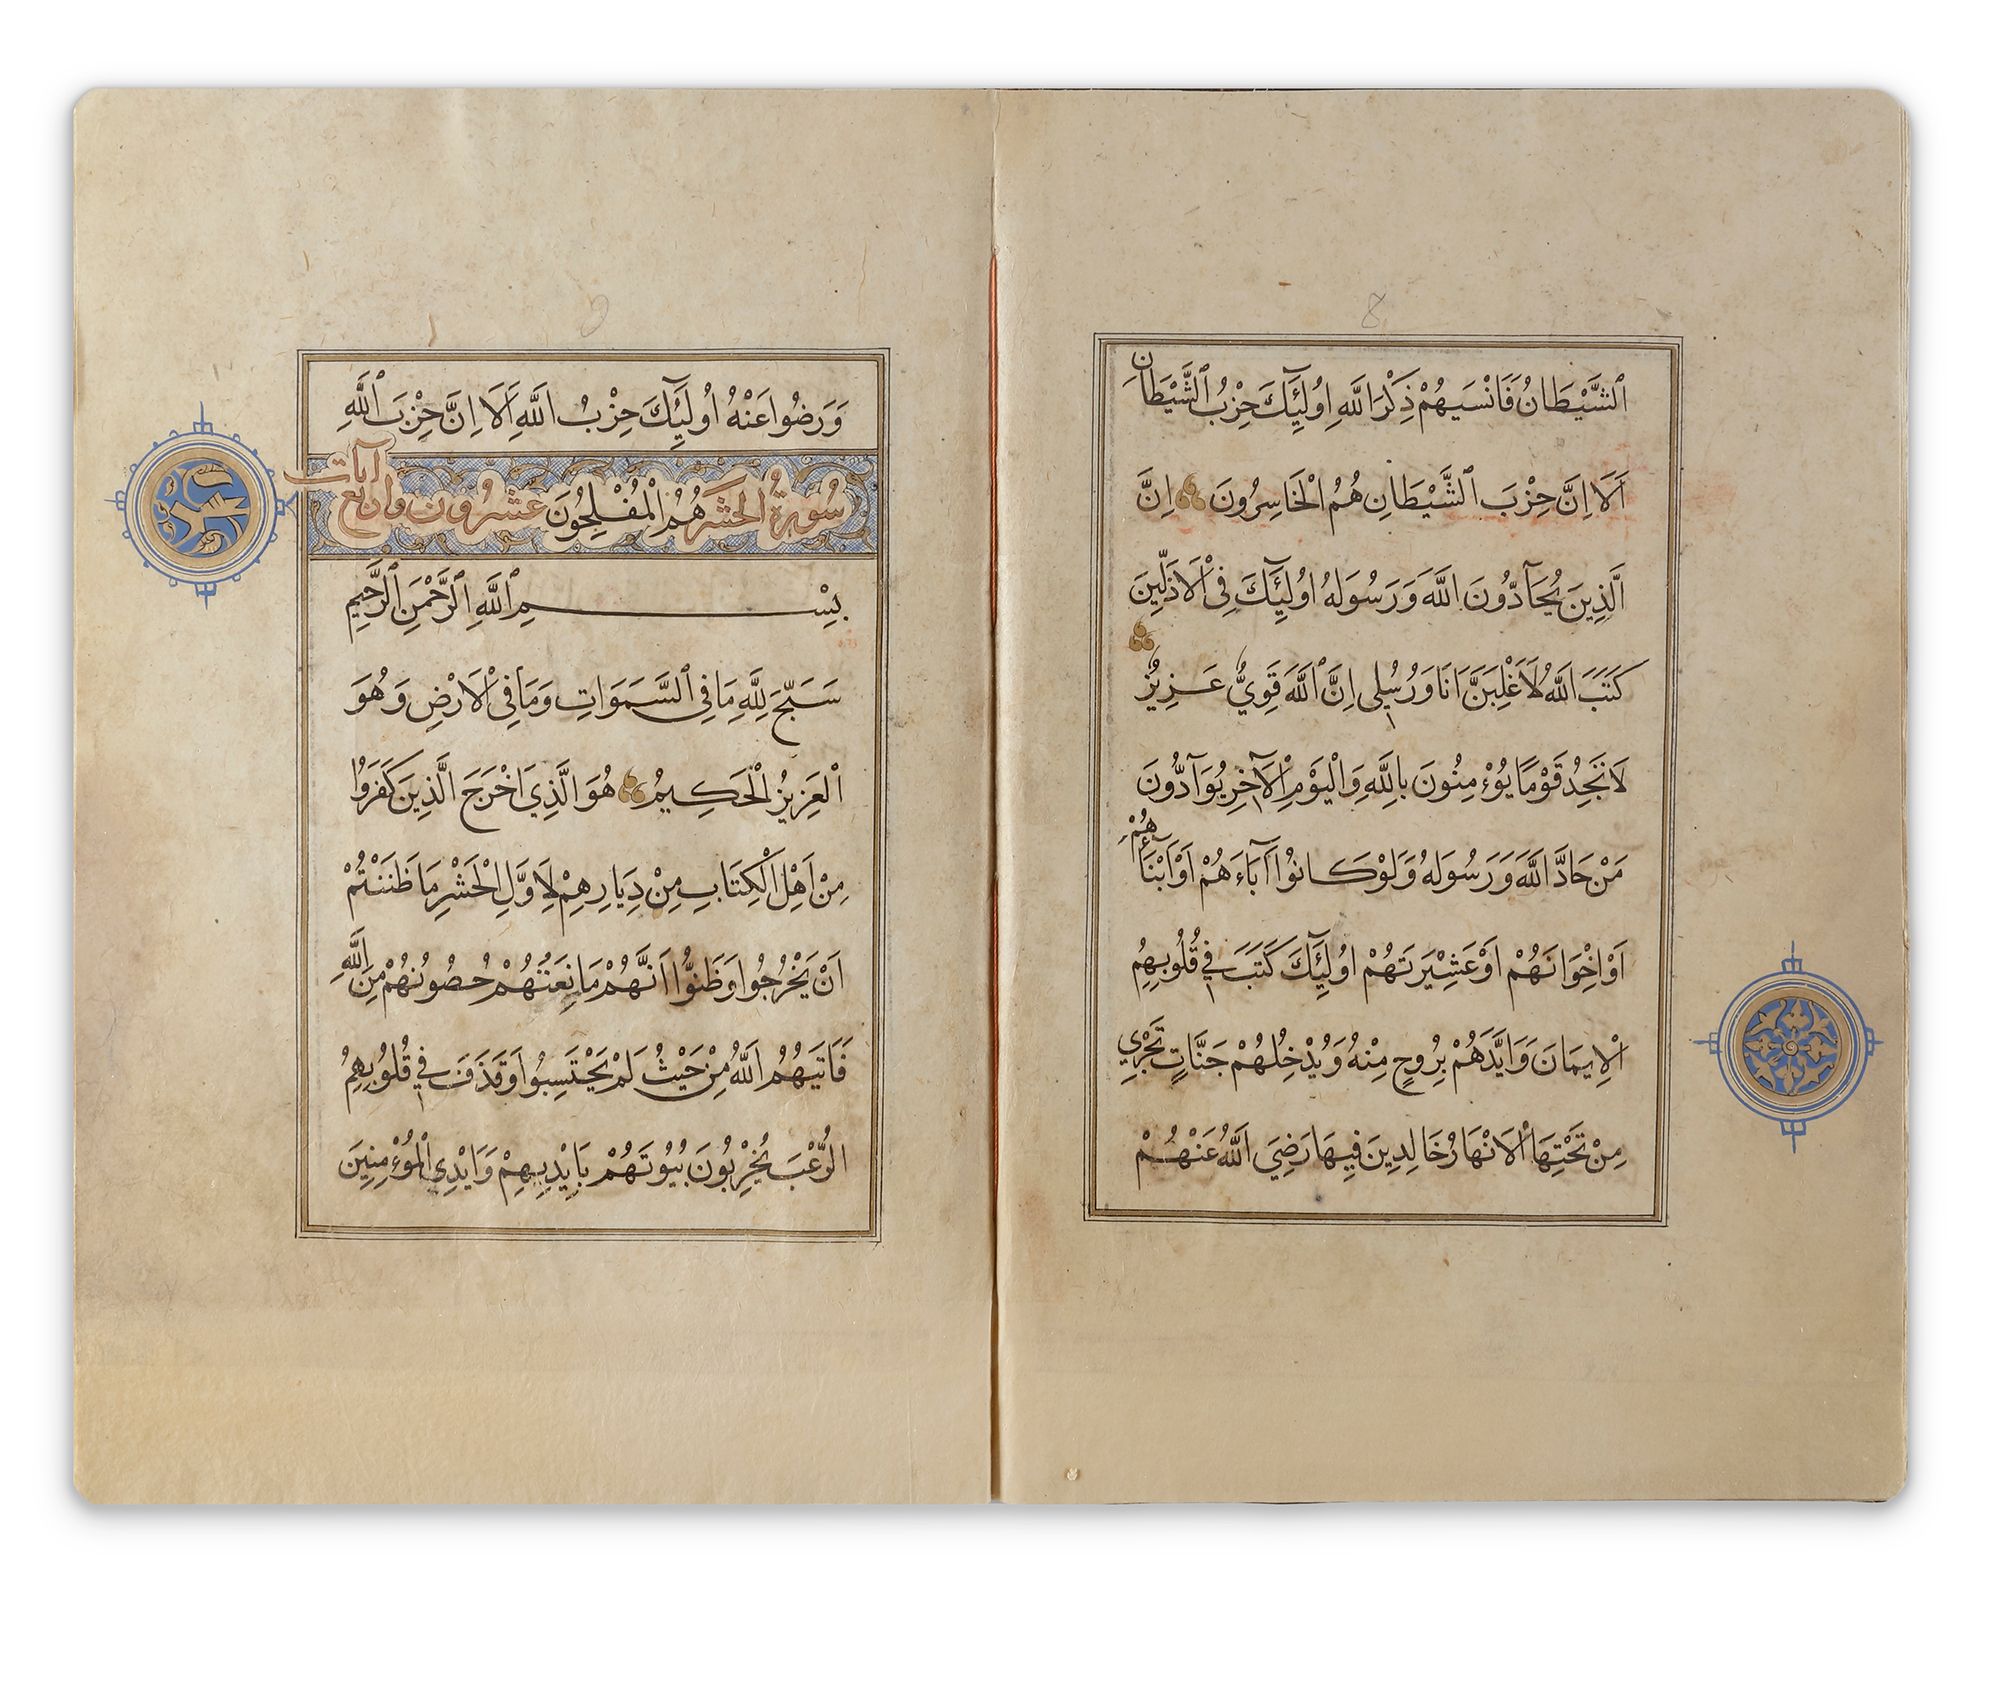 8
ٱلشَّيْطَانُ فَانْسَيهُمْ ذِكْرَ اللَّهِ اُولَئِكَ حِزْبُ ٱلشَّيْطَانِ
اَلَا اِنَّ حِزْبَ ٱلشَّيْطَانِ هُمُ الْخَاسِرُونَ اِنَّ
الَّذِينَ يُحَآدُّونَ اللَّهَ وَرَسُولَهُ اُولَئِكَ فِى الْاَذَلِّينَ
كَتَبَ اللَّهُ لَاَغْلِبَنَّ اَنَا وَرُسُلِى اِنَّ ٱللَّهَ قَوِيٌّ عَزِيزٌ
لَا تَجِدُ قَوْمًا يُوْءمِنُونَ بِاللَّهِ وَالْيَوْمِ الْآخِرِ يُوَآدُّونَ
مَنْ حَادَّ اللَّهَ وَرَسُولَهُ وَلَوْ كَانُوا آبَاءَهُمْ اَوْ اَبْنَاءَهُمْ
اَوْ اِخْوَانَهُمْ اَوْ عَشِيْرَتَهُمْ اُولَئِكَ كَتَبَ فِى قُلُوبِهِمُ
الْاِيمَانَ وَاَيَّدَهُمْ بِرُوحٍ مِنْهُ وَيُدْخِلُهُمْ جَنَّاتٍ تَجْرِي
مِنْ تَحْتِهَا الْاَنْهَارُ خَالِدِينَ فِيهَا رَضِيَ اللَّهُ عَنْهُمْ
وَرَضُوا عَنْهُ اُولَئِكَ حِزْبُ اللَّهِ اَلَا اِنَّ حِزْبَ ٱللَّهِ
سُورَةُ الْحَشْرِ هُمُ الْمُفْلِحُونَ عشرون واربع آيات
بِسْمِ ٱللَّهِ ٱلرَّحْمَنِ ٱلرَّحِيمِ
سَبَّحَ لِلَّهِ مَا فِى ٱلسَّمَوَاتِ وَمَا فِى الْاَرْضِ وَهُوَ
الْعَزِيزُ الْحَكِيمُ هُوَ الَّذِي اَخْرَجَ الَّذِينَ كَفَرُوا
مِنْ اَهْلِ الْكِتَابِ مِنْ دِيَارِهِمْ لِاَوَّلِ الْحَشْرِ مَا ظَنَنْتُمْ
اَنْ يَخْرُجُوا وَظَنُّوا اَنَّهُمْ مَانِعَتُهُمْ حُصُونُهُمْ مِنَ اللَّهِ
فَاَتَيهُمُ اللَّهُ مِنْ حَيْثُ لَمْ يَحْتَسِبُوا وَقَذَفَ فِى قُلُوبِهِمُ
الرُّعْبَ يُخْرِبُونَ بُيُوتَهُمْ بِاَيْدِيهِمْ وَاَيْدِي الْمُوْءمِنِينَ